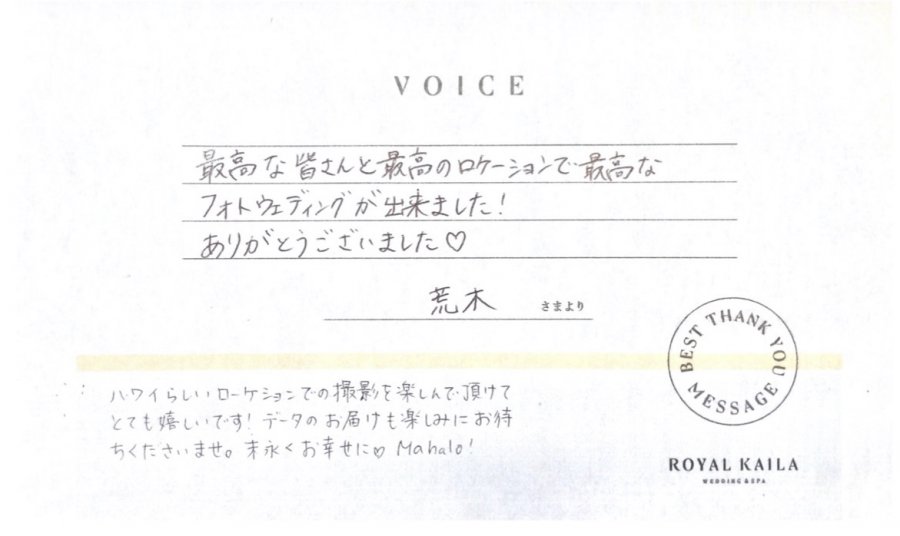 VOICE
最高な皆さんと最高のロケーションで最高な
フォトウェディングが出来ました！
ありがとうございました♡
荒木 さまより
BEST THANK YOU MESSAGE
ハワイらしいローケションでの撮影を楽しんで頂けて
とても嬉しいです！データのお届けも楽しみにお待
ちくださいませ。末永くお幸せに♡ Mahalo！
ROYAL KAILA
WEDDING & SPA